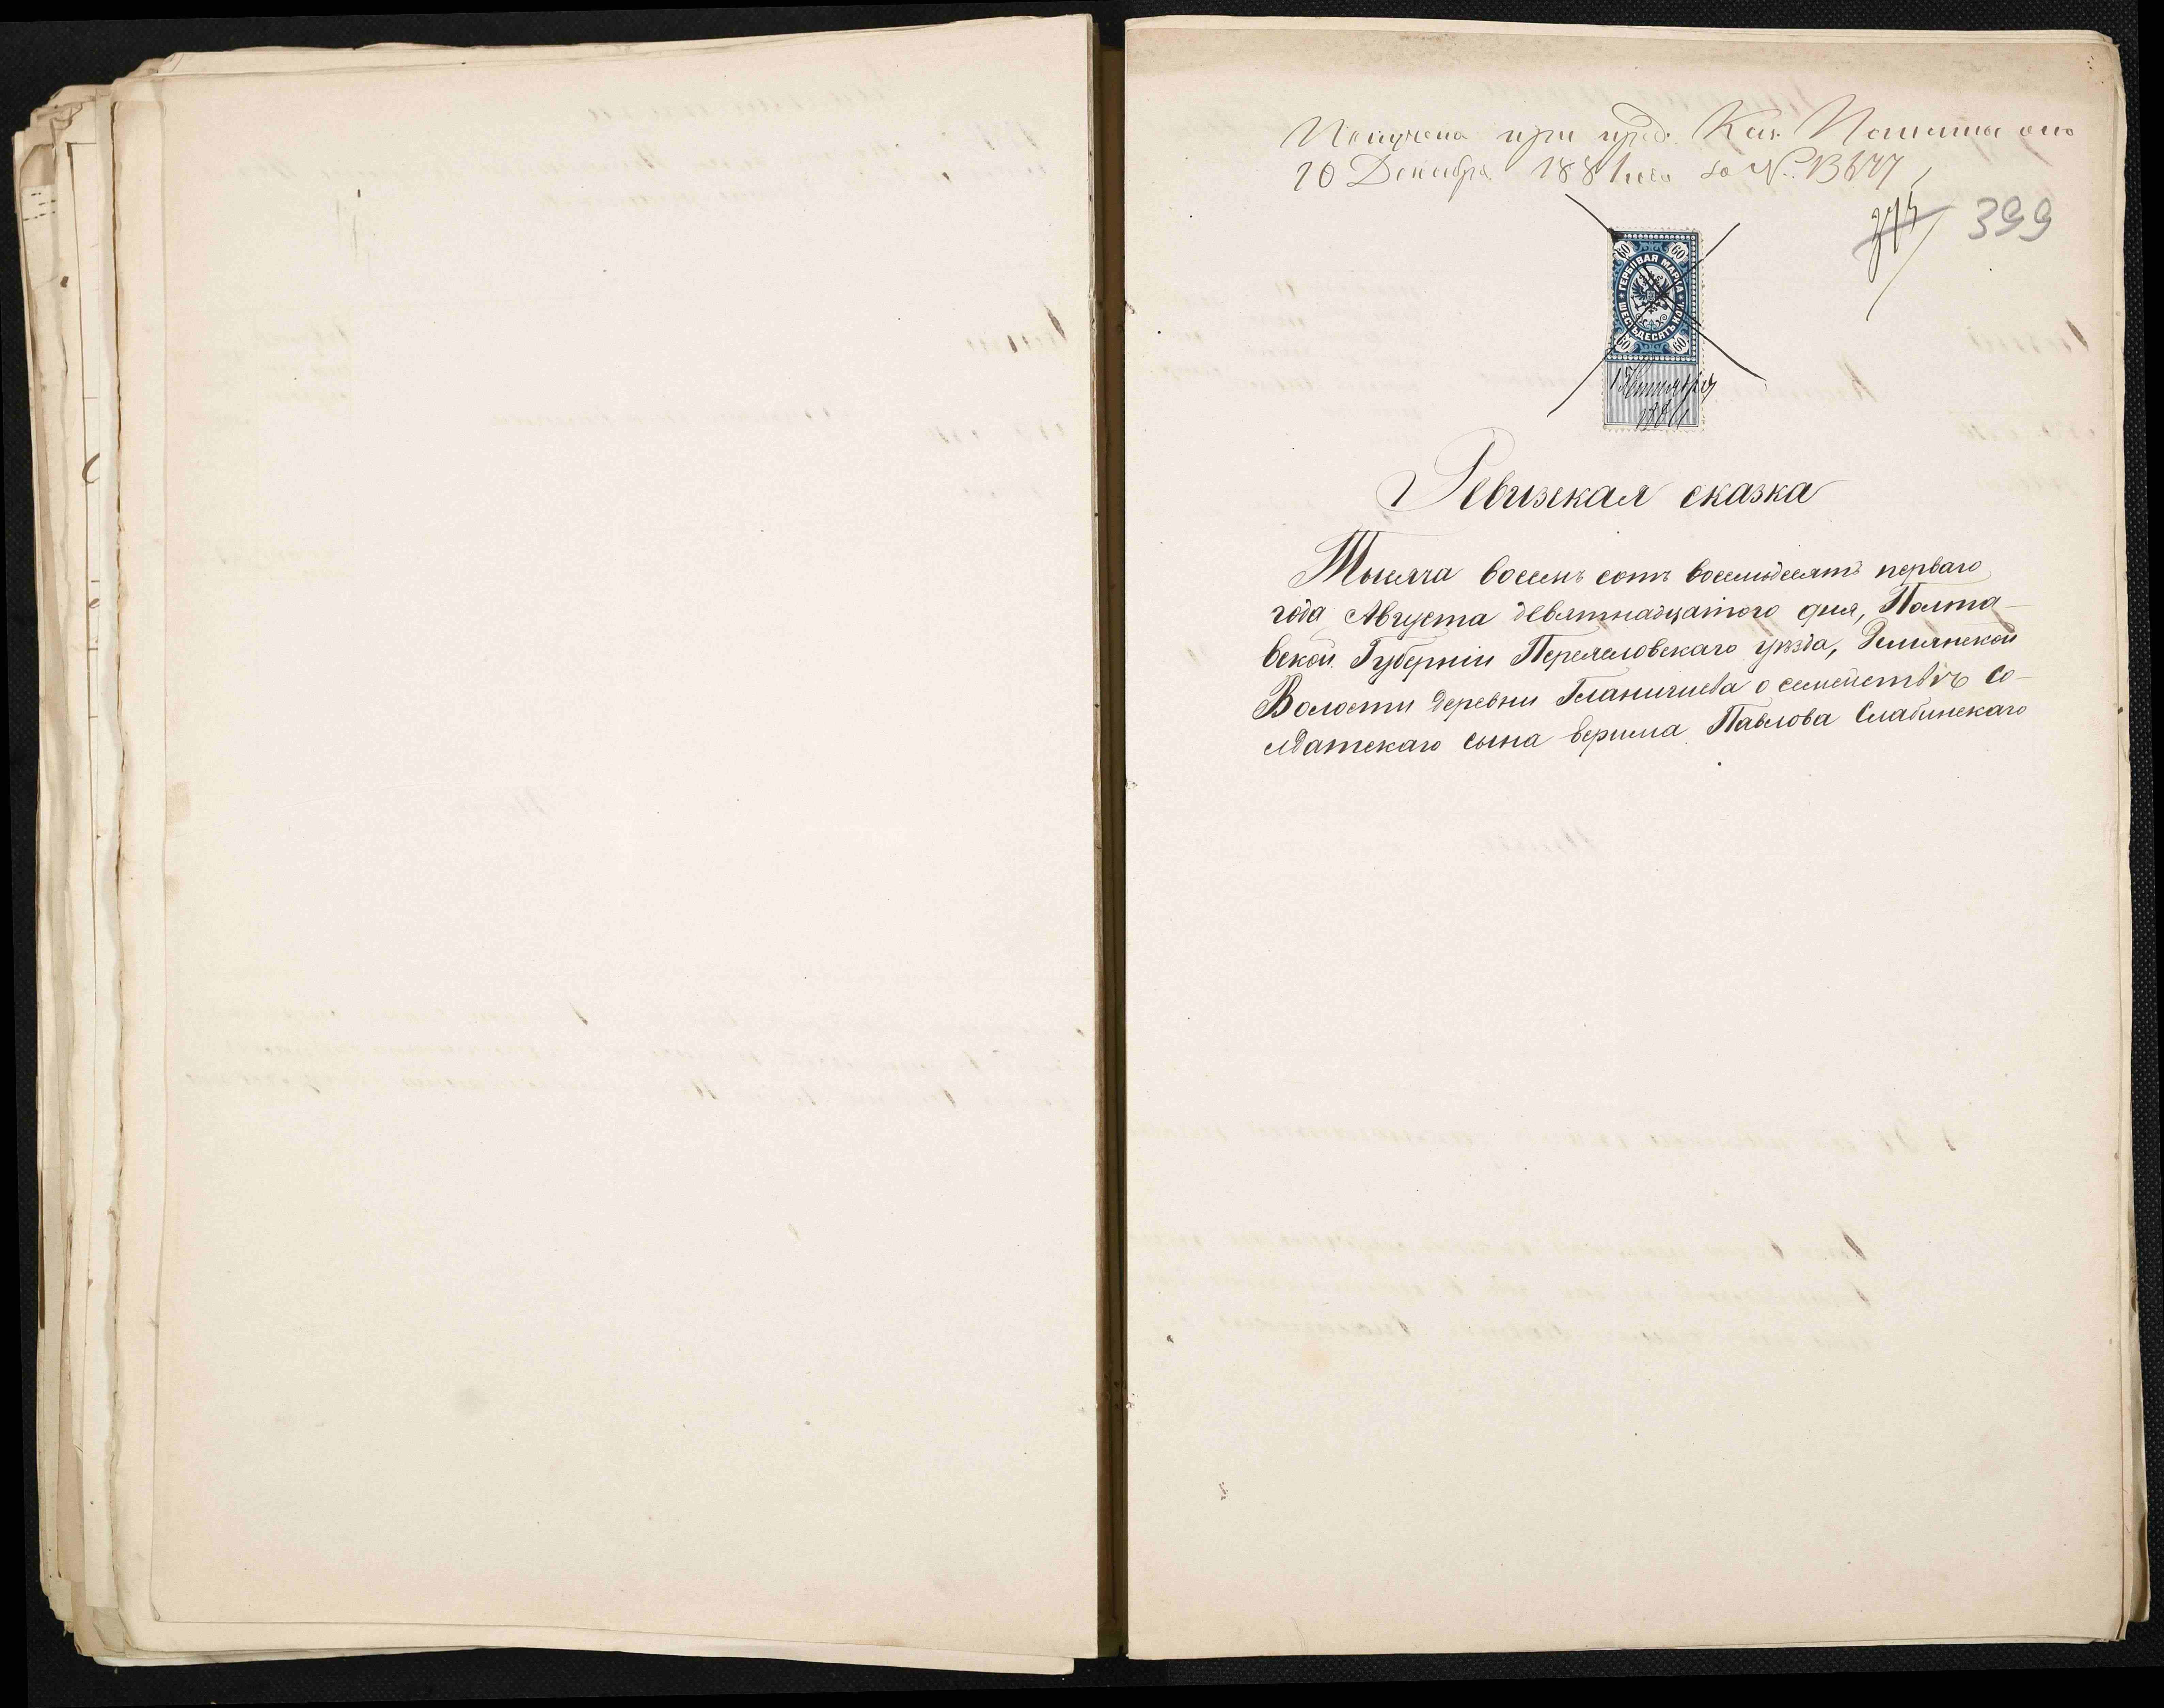 Получена при пред. Каз. Палаты отъ
20 Декабря 1881 года за №. 13677
375 399
60 60
ГЕРБОВАЯ МАРКА
ШЕСТЬДЕСЯТЪ КОП.
60 60
15 Сентября
1881
Ревизская сказка
Тысяча восемь сотъ восемьдесятъ перваго
года Августа девятнадцатого дня, Полта-
вской Губерніи Переяславскаго уѣзда,
Волости деревни о семействѣ со-
лдатскаго сына Павлова Слабинскаго